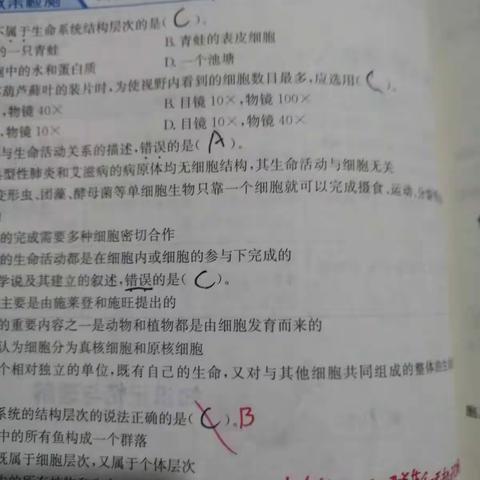 不属于生命系统结构层次的是( C )。
的一只青蛙 B. 青蛙的表皮细胞
胞中的水和蛋白质 D. 一个池塘
葫芦藓叶的装片时,为使视野内看到的细胞数目最多,应选用( C )。
,物镜 40× B. 目镜 10×,物镜 100×
,物镜 10× D. 目镜 10×,物镜 40×
与生命活动关系的描述,错误的是( A )。
典型性肺炎和艾滋病的病原体均无细胞结构,其生命活动与细胞无关
变形虫、团藻、酵母菌等单细胞生物只靠一个细胞就可以完成摄食、运动、分裂
的完成需要多种细胞密切合作
的生命活动都是在细胞内或细胞的参与下完成的
学说及其建立的叙述,错误的是( C )。
主要是由施莱登和施旺提出的
的重要内容之一是动物和植物都是由细胞发育而来的
认为细胞分为真核细胞和原核细胞
个相对独立的单位,既有自己的生命,又对与其他细胞共同组成的整体的生
系统的结构层次的说法正确的是( C )。B
中的所有鱼构成一个群落
既属于细胞层次,又属于个体层次